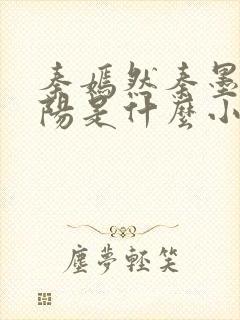 秦嫣然秦墨
陽是什麼小
塵夢輕笑